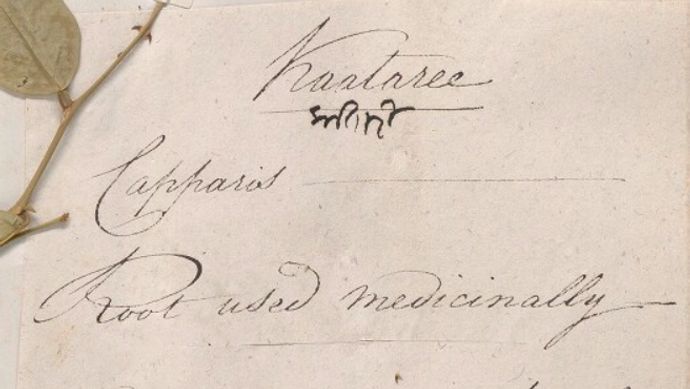 Kantaree
Capparis
Root used medicinally